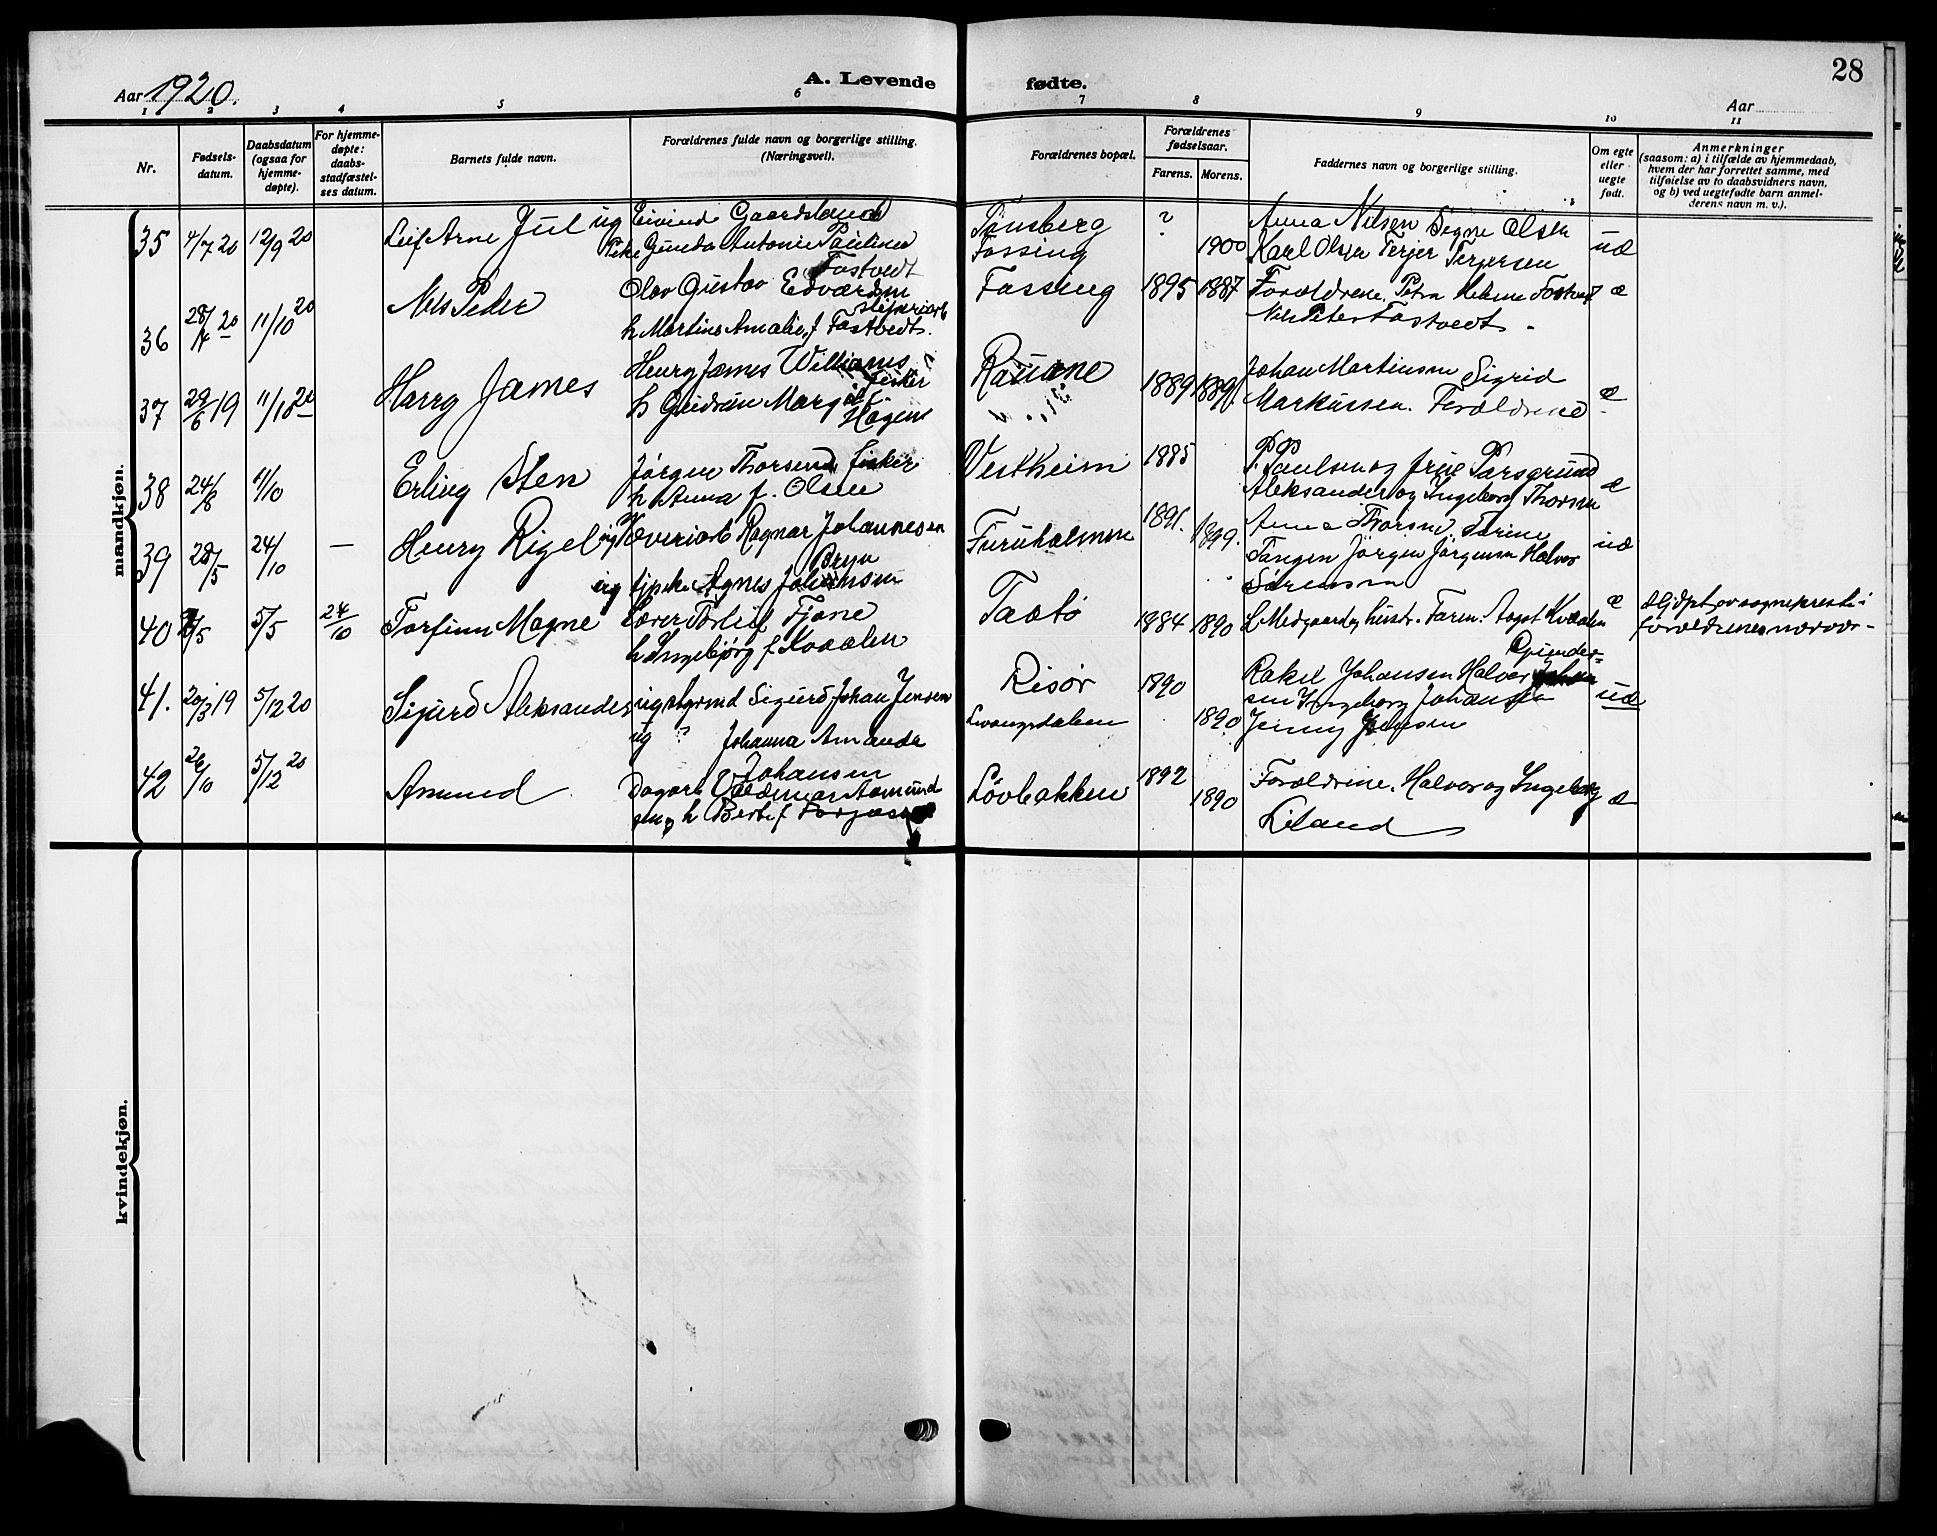 28
Aar 1920.
A. Levende fødte.
Aar
1 2 3 4 5 6 7 8 9 10 11
Nr.
Fødsels-
datum.
Daabsdatum
(ogsaa for
hjemme-
døpte).
For hjemme-
døpte:
daabs-
stadfæstel-
ses datum.
Barnets fulde navn.
Forældrenes fulde navn og borgerlige stilling.
(Næringsvei).
Forældrenes bopæl.
Forældrenes
fødselsaar.
Farens. Morens.
Faddernes navn og borgerlige stilling.
Om egte
eller
uegte
født.
Anmerkninger
(saasom: a) i tilfælde av hjemmedaab,
hvem der har forrettet samme, med
tilføielse av to daabsvidners navn,
og b) ved uegtefødte barn anmel-
derens navn m. v.).
mandkjøn.
35 4/7 20 12/9 20 Leif Arne Jul
ug Eivind Gaardsland
Pike Gunda Antonie Pauline
Tostvedt
Tønsberg
Fossing
? 1900
Anna Nilsen Signe Olsen
Karl Olsen Terjer Terjersen
uæ
36 28/4 20 11/10 20 Nils Peder
Olav Gustav Edvardsen
h Martine Amalie f Tostvedt.
Fossing 1895 1887
Forældrene, Petra Helene Tostvedt
Nils Peter Tostvedt
æ
37 29/6 19 11/10 20 Harry James
Henry James Williams
fisker
h Gudrun Margit
Hagene
1889
Johan Martinsen Sigrid
Markussen. Forældrene
æ
38 24/8 11/10 Erling Sten
Jørgen Thorsen, fisker
h Anna f. Olsen
Vestheim 1885
P. Paulsen og frue Porsgrund
Aleksander og Ingeborg Thorsen
æ
39 28/5 24/10 — Henry Rigel
ug Ragnar Johannesen
Bryn
ug Agnes Johansen
Furuholmen 1891. 1899.
Anna Thorsen, Torine
Tangen Jørgen Jørgensen Halvor
Sørensen
uæ
40 5/5 24/10 Torfinn Magne
Lærer Torleif Fjone
h Ingebjørg f Kvaalen
Taatø 1884 1890
L Medgaard og hustr. Faren. Aagot Kvaalen
æ
forældrene
41. 20/3 19 5/12 20 Sigurd Aleksander
ug styrmd Sigurd Johan Jensen
ug ? Johanna Amanda
Johansen
Risør
1890 1890
Rakel Johansen Halvor
sen Ingeborg Johansen
Jenny Jensen
uæ
42 26/10 5/12 20 Amund
Dagarb Valdemar Aamund
sen, h Berte f
Løvbakken 1892 1890
Forældrene, Halvor og Ingeborg
Liland
æ
kvindekjøn.